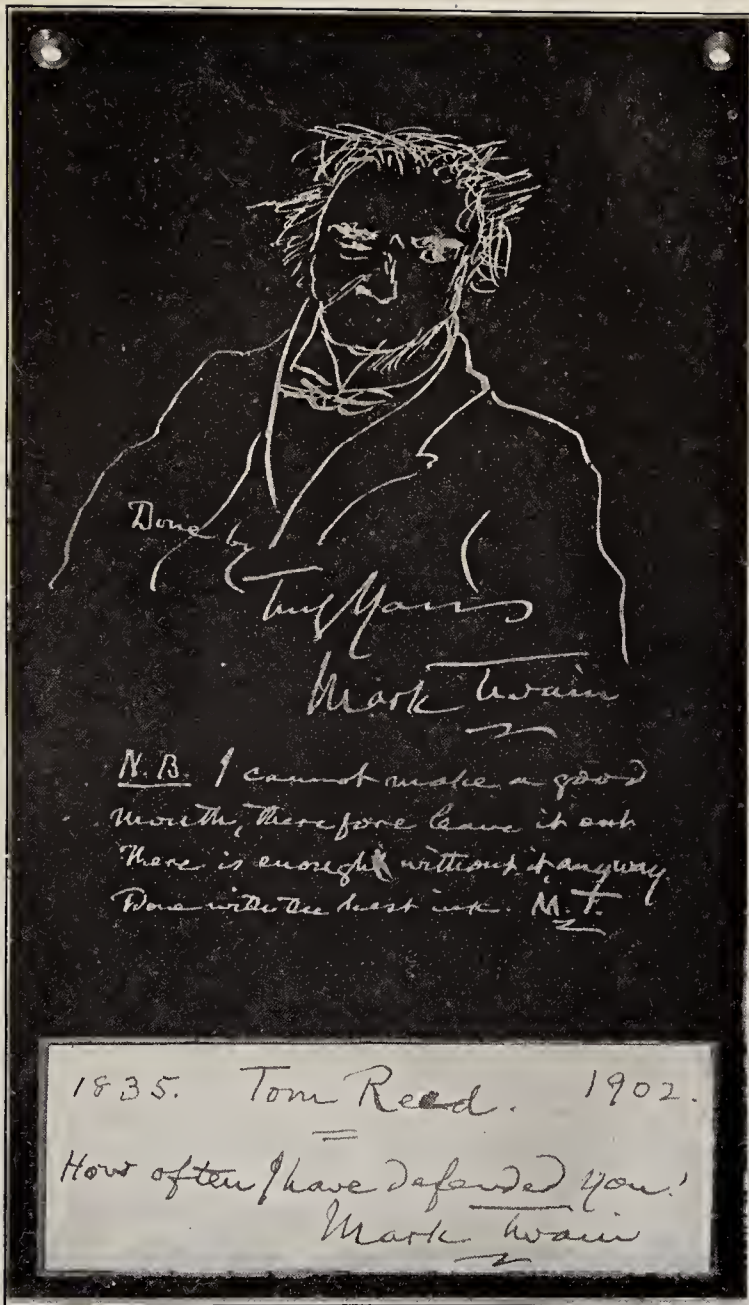 Done by
Truly Yours
Mark Twain
N.B. I cannot make a good
mouth, therefore leave it out
There is enough without it, anyway
Done with the best ink. M.T.
1835. Tom Reed. 1902.
How often I have defended you!
Mark Twain